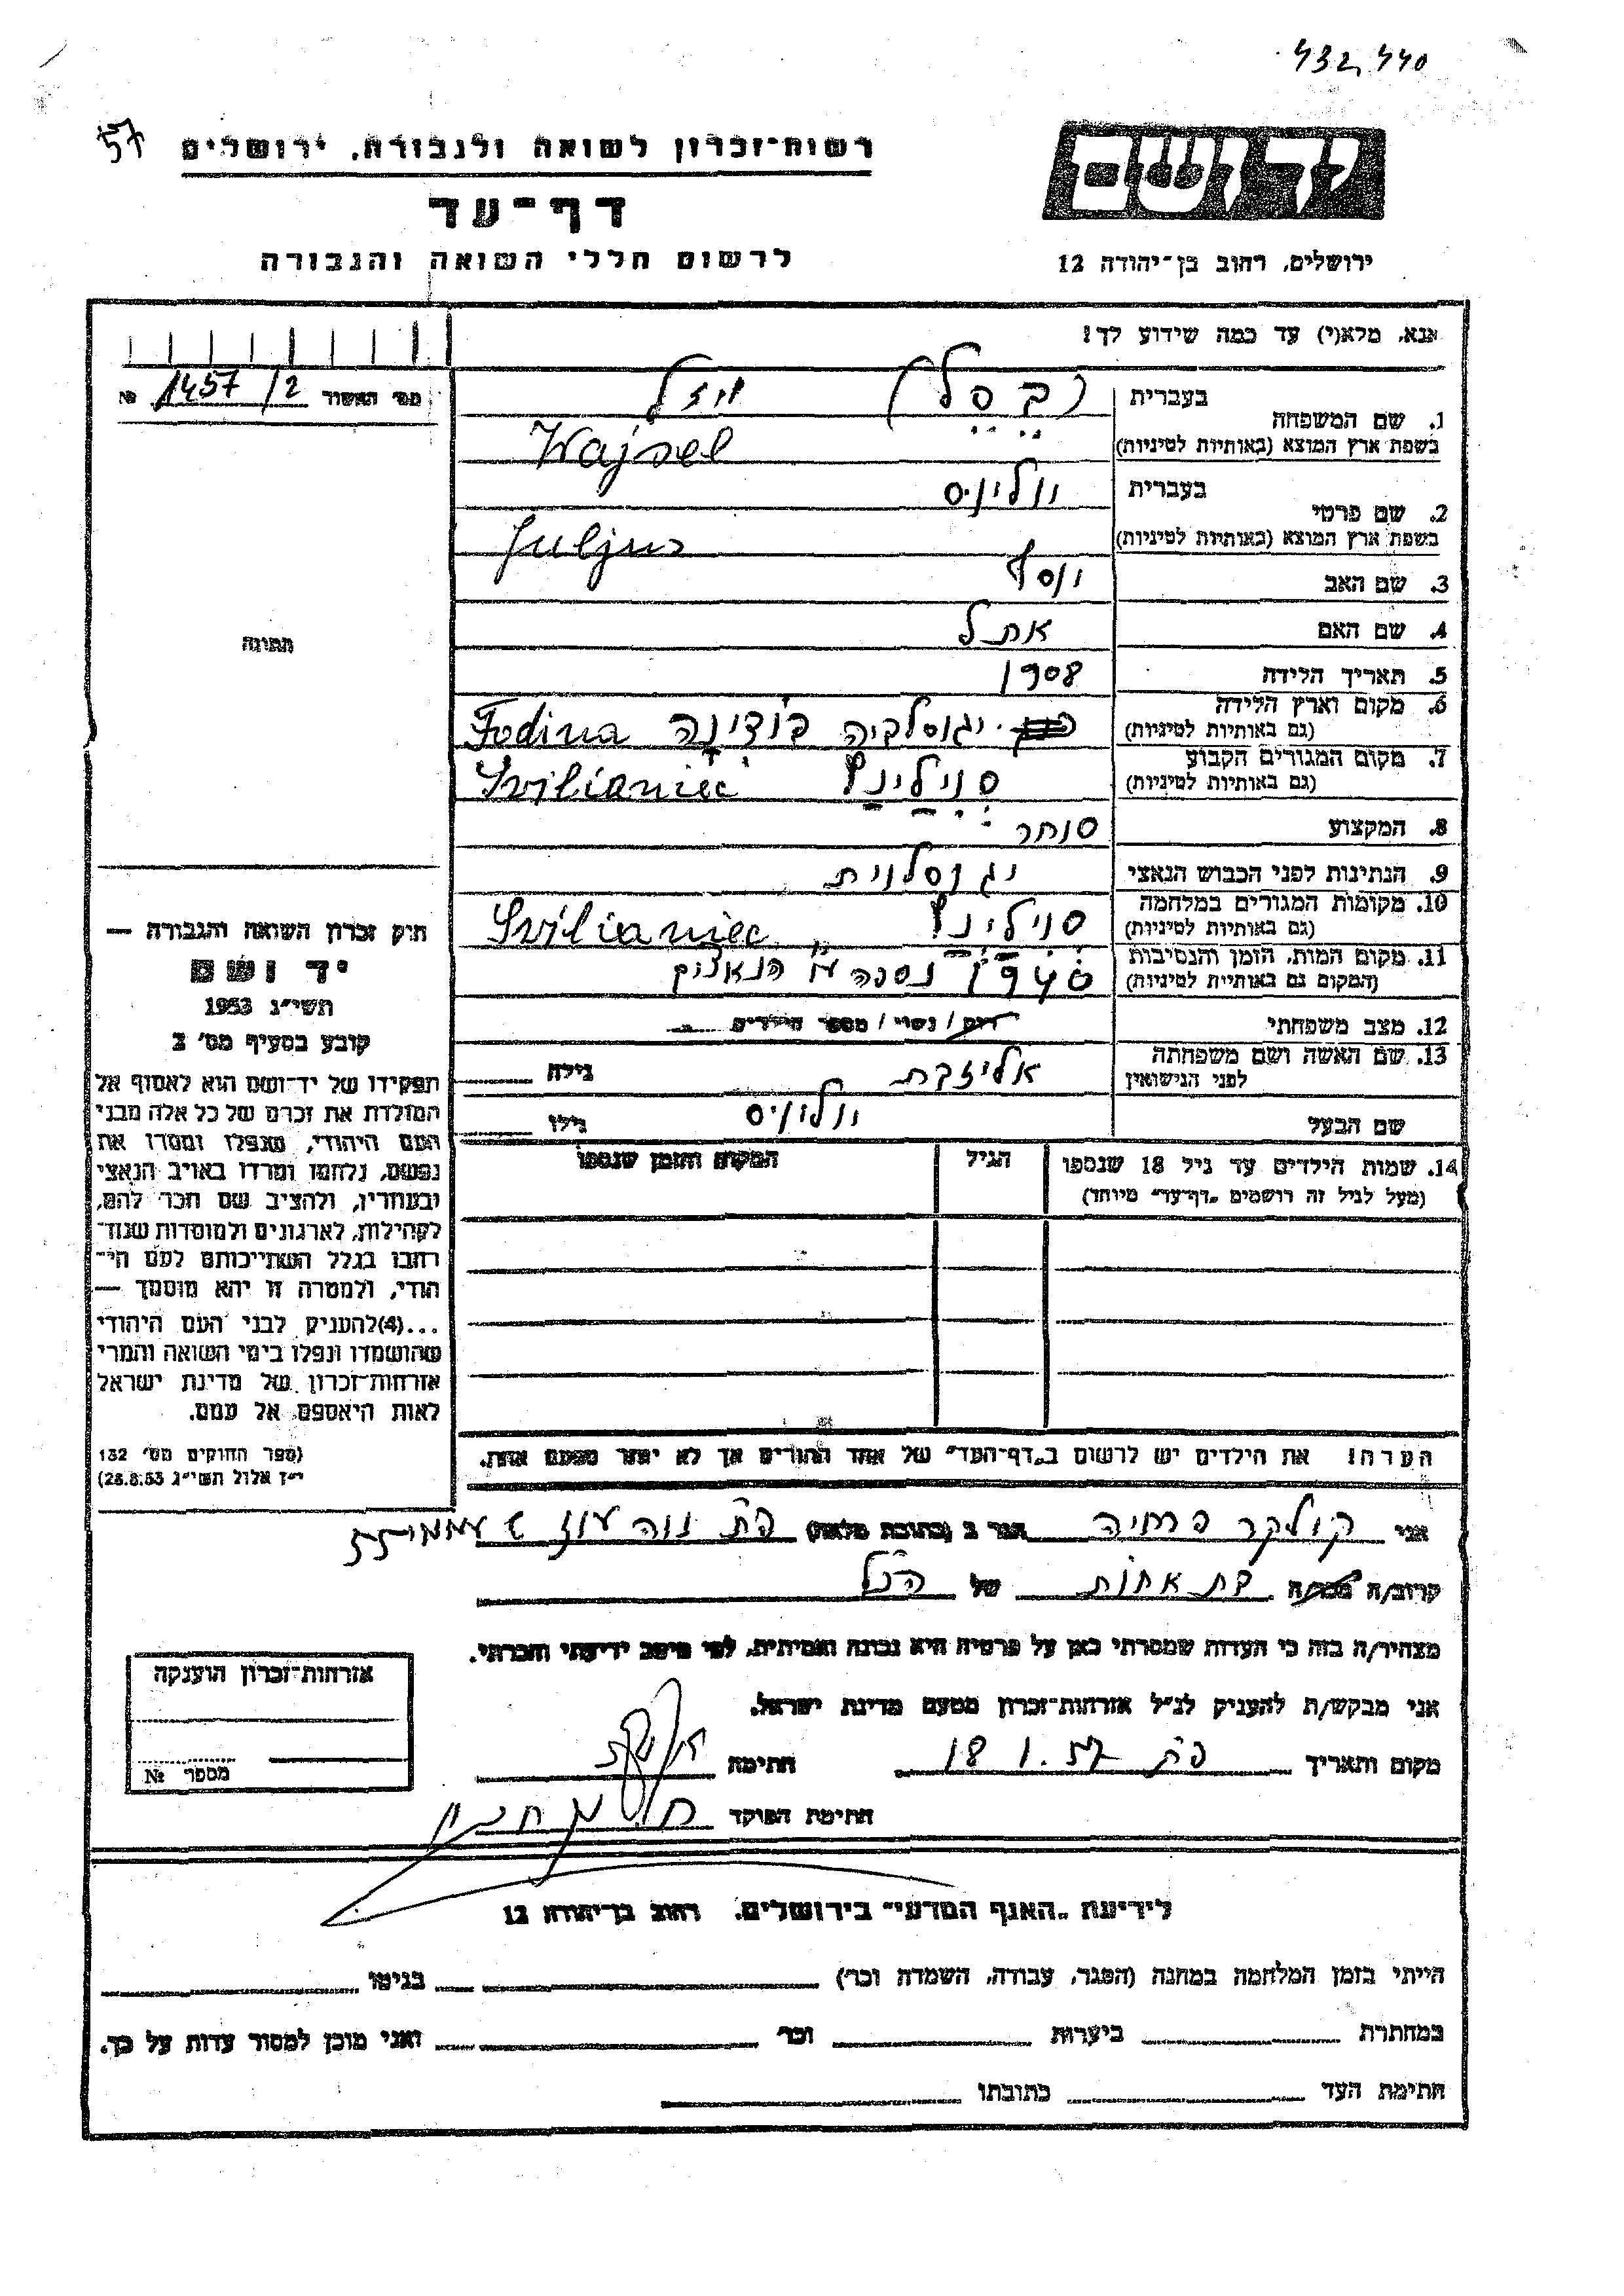 432,440
57
רשות-זכרון לשואה ולגבורה, ירושלים
דף-עד
לרשום חללי השואה והגבורה
יד ושם
ירושלים, רחוב בן-יהודה 12
אנא, מלא(י) עד כמה שידוע לך!
מס' האשור 1457/2 №
תמונה
1. שם המשפחה
בעברית
בשפת ארץ המוצא (באותיות לטיניות)
Wajsel
2. שם פרטי
בעברית יוליוס
בשפת ארץ המוצא (באותיות לטיניות) Juljus
3. שם האב יוסף
4. שם האם אתל
5. תאריך הלידה 1908
6. מקום וארץ הלידה
(גם באותיות לטיניות)
יגוסלביה פודינה Fodina
7. מקום המגורים הקבוע
(גם באותיות לטיניות)
סוילינץ
8. המקצוע סוחר
9. הנתינות לפני הכבוש הנאצי יגוסלוית
10. מקומות המגורים במלחמה
(גם באותיות לטיניות)
סוילינץ Svilianiec
11. מקום המות, הזמן והנסיבות
(המקום גם באותיות לטיניות)
נספה ע"י הנאצים
12. מצב משפחתי רוק / נשוי / מספר הילדים
13. שם האשה ושם משפחתה
לפני הנישואין
אליזבת גילה
שם הבעל יוליוס גילו
14. שמות הילדים עד גיל 18 שנספו
(מעל לגיל זה רושמים „דף-עד" מיוחד)
הגיל
המקום והזמן שנספו
הערה! את הילדים יש לרשום ב„דף-העד" של אחד ההורים אך לא יותר מפעם אחת.
חוק זכרון השואה והגבורה —
יד ושם
תשי"ג 1953
קובע בסעיף מס' 2
תפקידו של יד-ושם הוא לאסוף אל
המולדת את זכרם של כל אלה מבני
העם היהודי, שנפלו ומסרו את
נפשם, נלחמו ומרדו באויב הנאצי
ובעוזריו, ולהציב שם וזכר להם,
לקהילות, לארגונים ולמוסדות שנח-
רבו בגלל השתייכותם לעם הי-
הודי, ולמטרה זו יהא מוסמך —
...(4) להעניק לבני העם היהודי
שהושמדו ונפלו בימי השואה והמרי
אזרחות-זכרון של מדינת ישראל
לאות היאספם אל עמם.
(ספר החוקים מס' 132
י"ז אלול תשי"ג 28.8.53)
אני הגר ב (כתובת מלאה) פת נוה עוז
קרוב/ה מכר/ה בת אחות של הנ"ל
מצהיר/ה בזה כי העדות שמסרתי כאן על פרטיה היא נכונה ואמיתית, לפי מיטב ידיעתי והכרתי.
אני מבקש/ת להעניק לנ"ל אזרחות-זכרון מטעם מדינת ישראל.
מקום ותאריך פת 18.1.57 חתימה
חתימת הפוקד
אזרחות-זכרון הוענקה
מספר №
לידיעת „האגף המדעי" בירושלים, רחוב בן-יהודה 12
הייתי בזמן המלחמה במחנה (הסגר, עבודה, השמדה וכו') בגיטו
במחתרת ביערות וכו' ואני מוכן למסור עדות על כך.
חתימת העד כתובתו